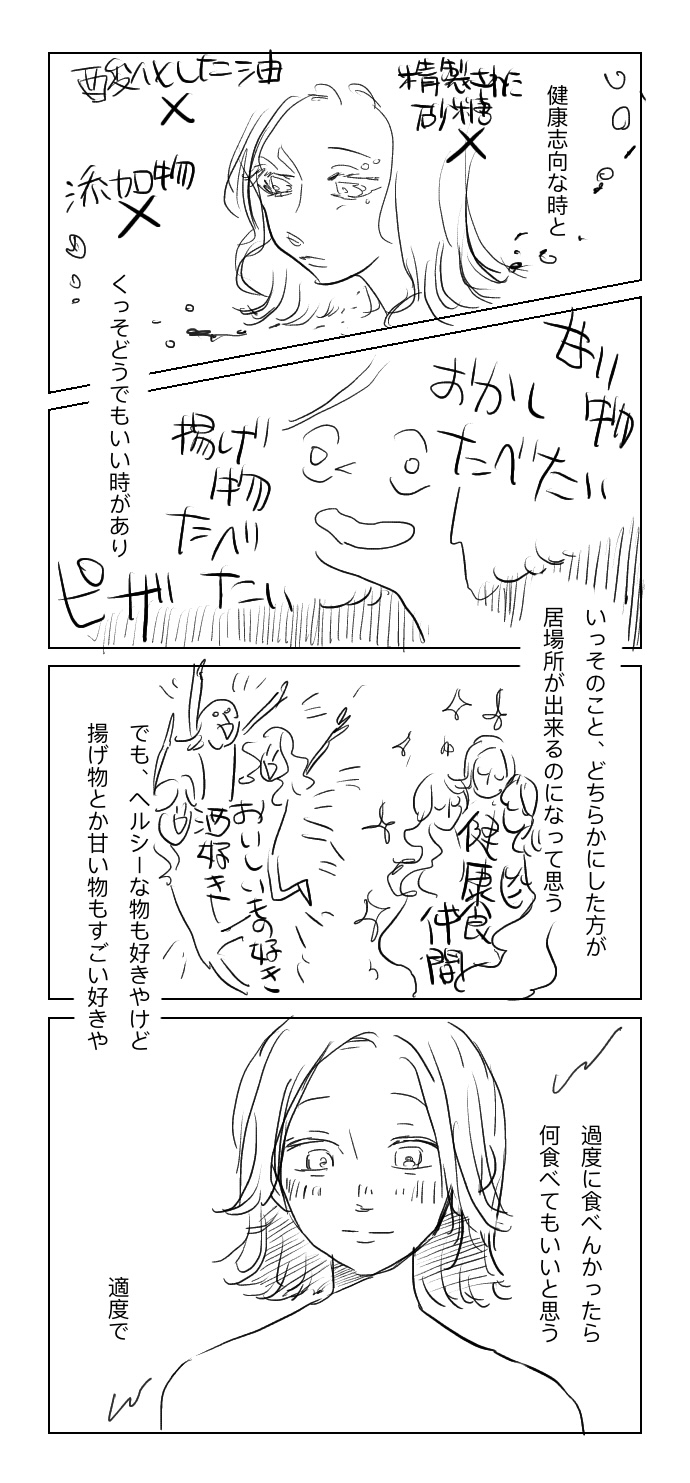 健康志向な時と
精製された
砂糖
酸化した油
添加物
くっそどうでもいい時があり
甘い
物
おかし
たべたい
揚げ
物
たべ
たい
ピザ
いっそのこと、どちらかにした方が
居場所が出来るのになって思う
健康食
仲間
おいしいもの好き
酒好き
でも、ヘルシーな物も好きやけど
揚げ物とか甘い物もすごい好きや
過度に食べんかったら
何食べてもいいと思う
適度で